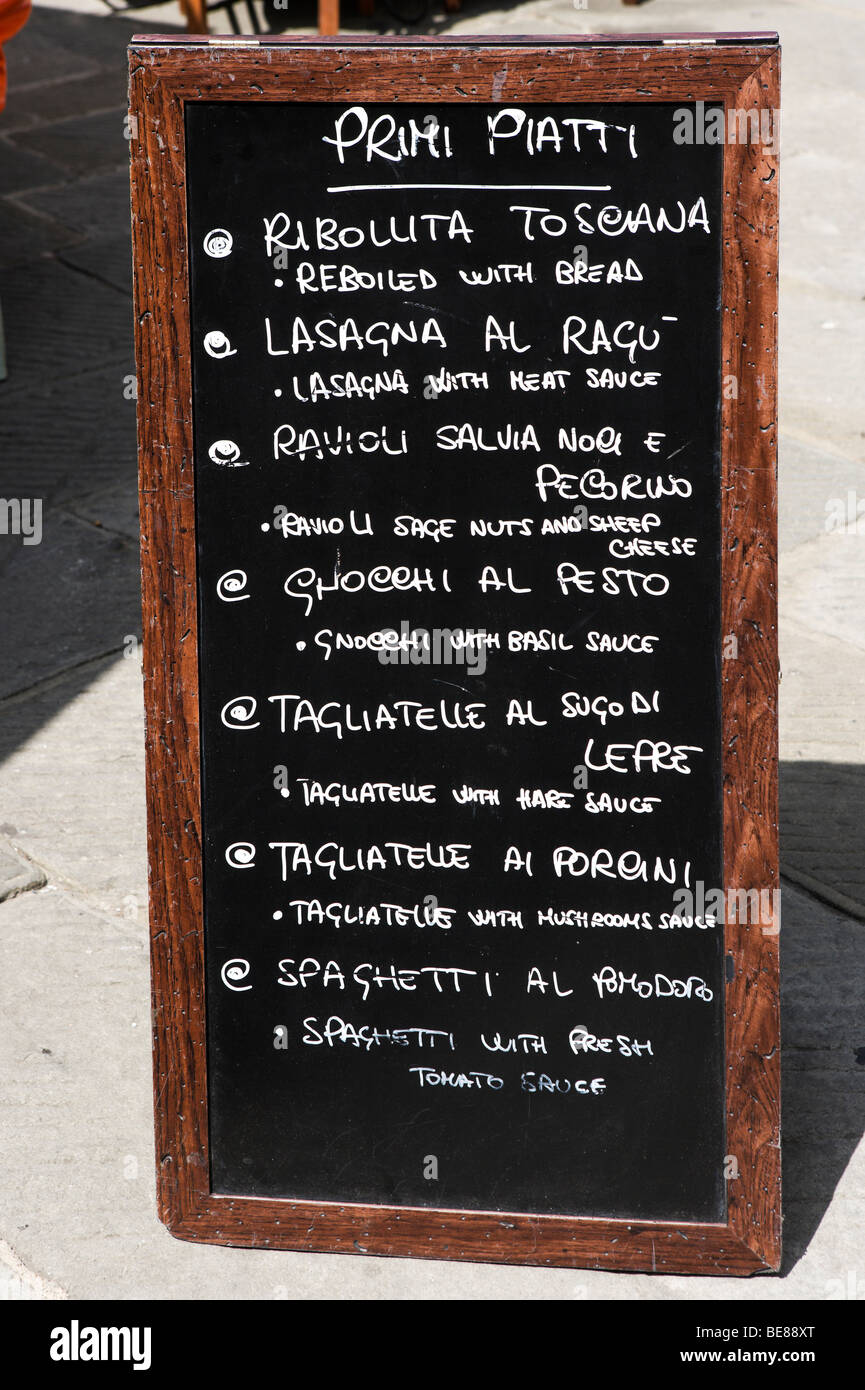 PRIMI PIATTI
@ RIBOLLITA TOSCANA
• REBOILED WITH BREAD
@ LASAGNA AL RAGÙ
• LASAGNA WITH MEAT SAUCE
@ RAVIOLI SALVIA NOCI E
PECORINO
• RAVIOLI SAGE NUTS AND SHEEP
CHEESE
@ GNOCCHI AL PESTO
• GNOCCHI WITH BASIL SAUCE
@ TAGLIATELLE AL SUGO DI
LEPRE
• TAGLIATELLE WITH HARE SAUCE
@ TAGLIATELLE AI PORCINI
• TAGLIATELLE WITH MUSHROOMS SAUCE
@ SPAGHETTI AL POMODORO
• SPAGHETTI WITH FRESH
TOMATO SAUCE
alamy
alamy
Image ID: BE88XT
www.alamy.com